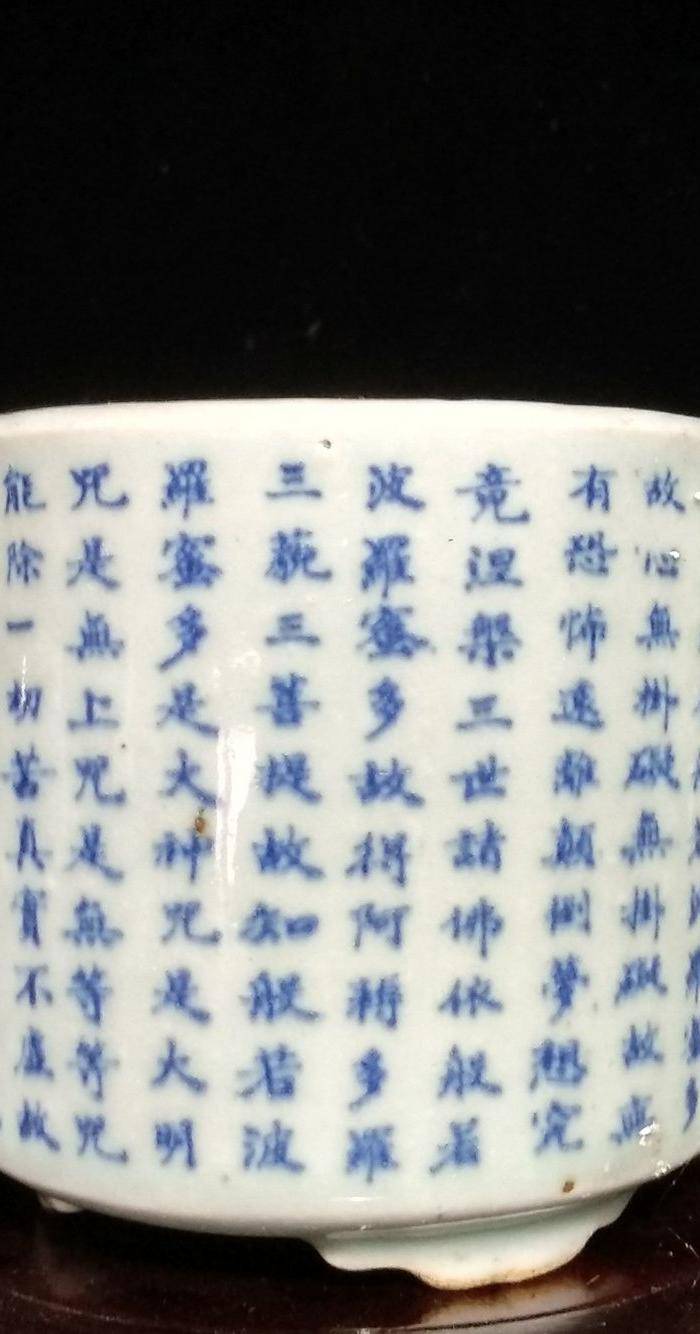 故心無掛礙無掛礙故無
有恐怖遠離顛倒夢想究
竟涅槃三世諸佛依般若
波羅蜜多故得阿耨多羅
三藐三菩提故知般若波
羅蜜多是大神咒是大明
咒是無上咒是無等等咒
能除一切苦真實不虛故